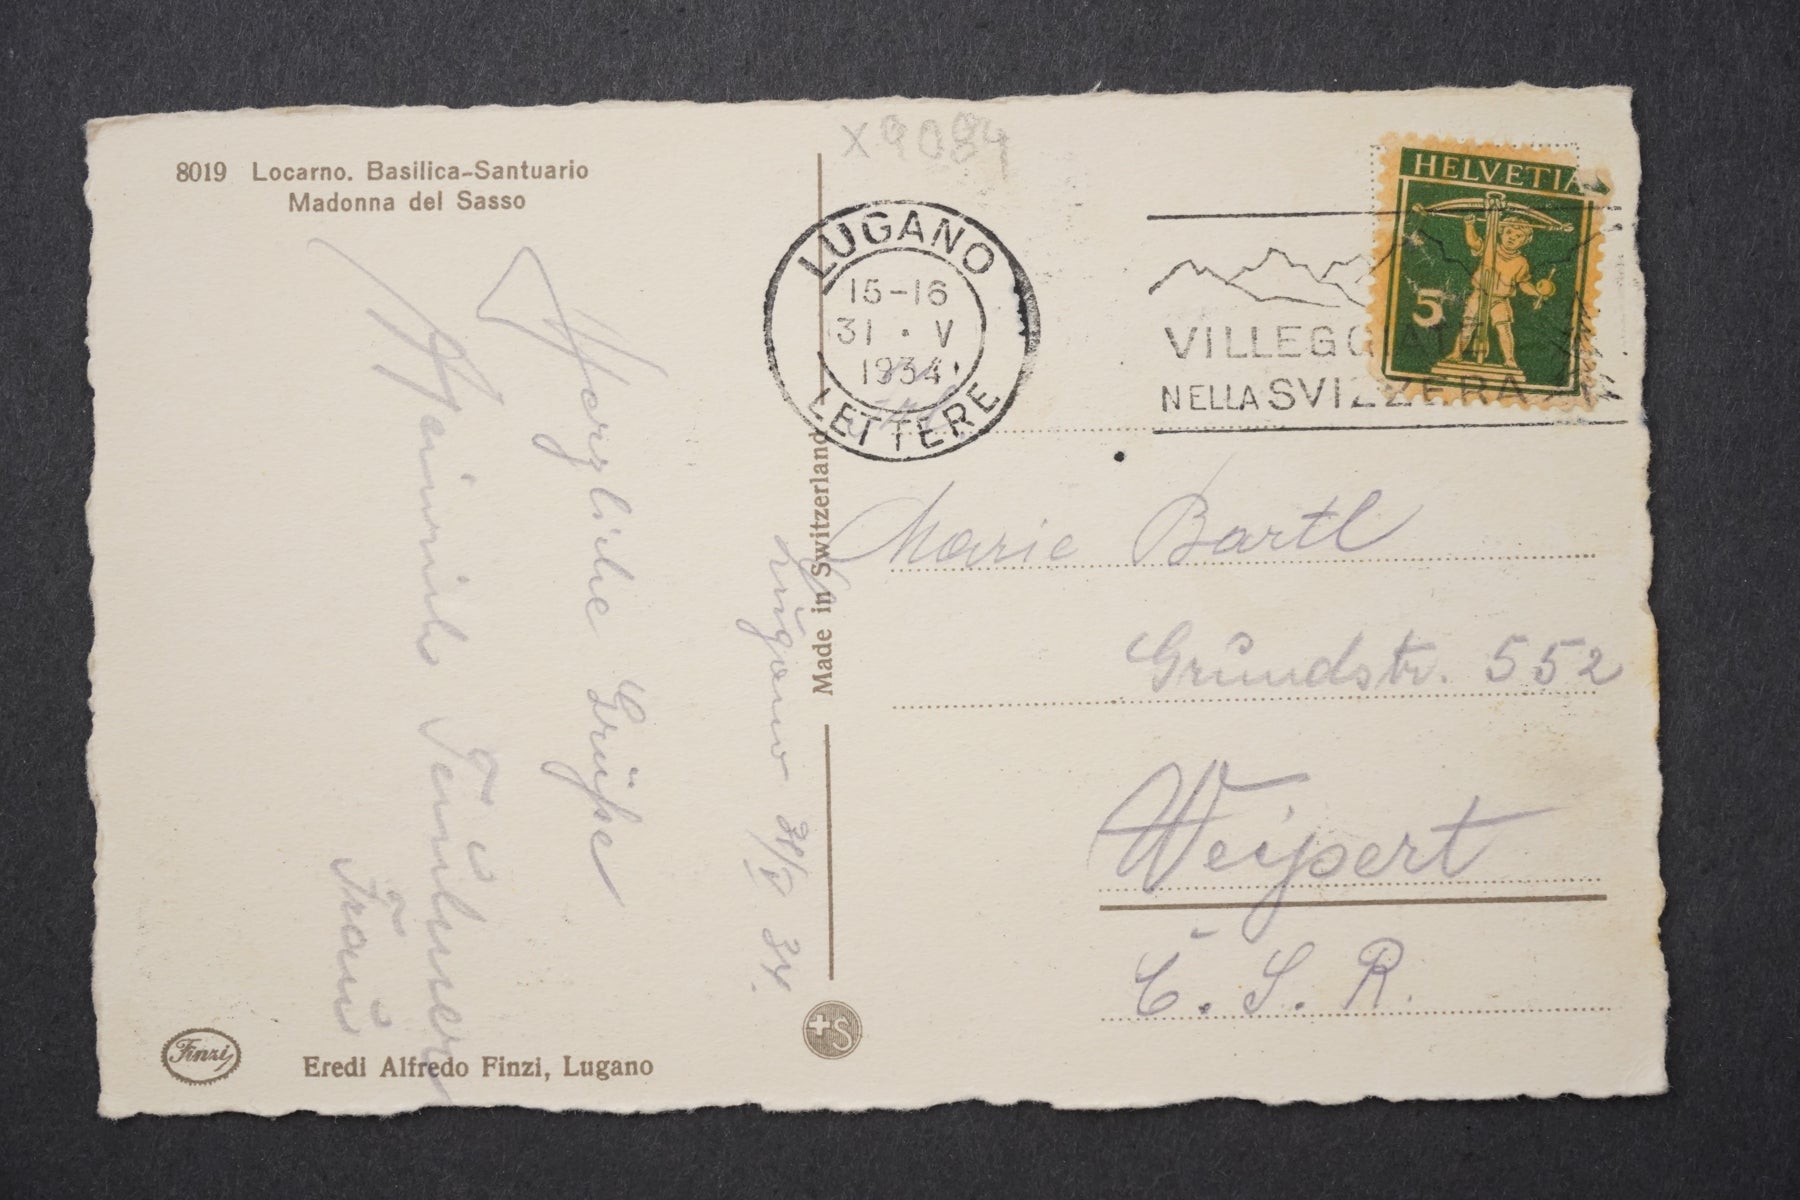 8019 Locarno. Basilica-Santuario
Madonna del Sasso
x9084
HELVETIA
5
LUGANO
15-16
31 · V
1934
LETTERE
VILLEGGIATE
NELLA SVIZZERA
Made in Switzerland
Lugano 31/V 34.
Herzliche Grüße
Heinrich
Frau
Marie Bartl
Grundstr. 552
Weipert
Č. S. R.
Finzi
Eredi Alfredo Finzi, Lugano
+S